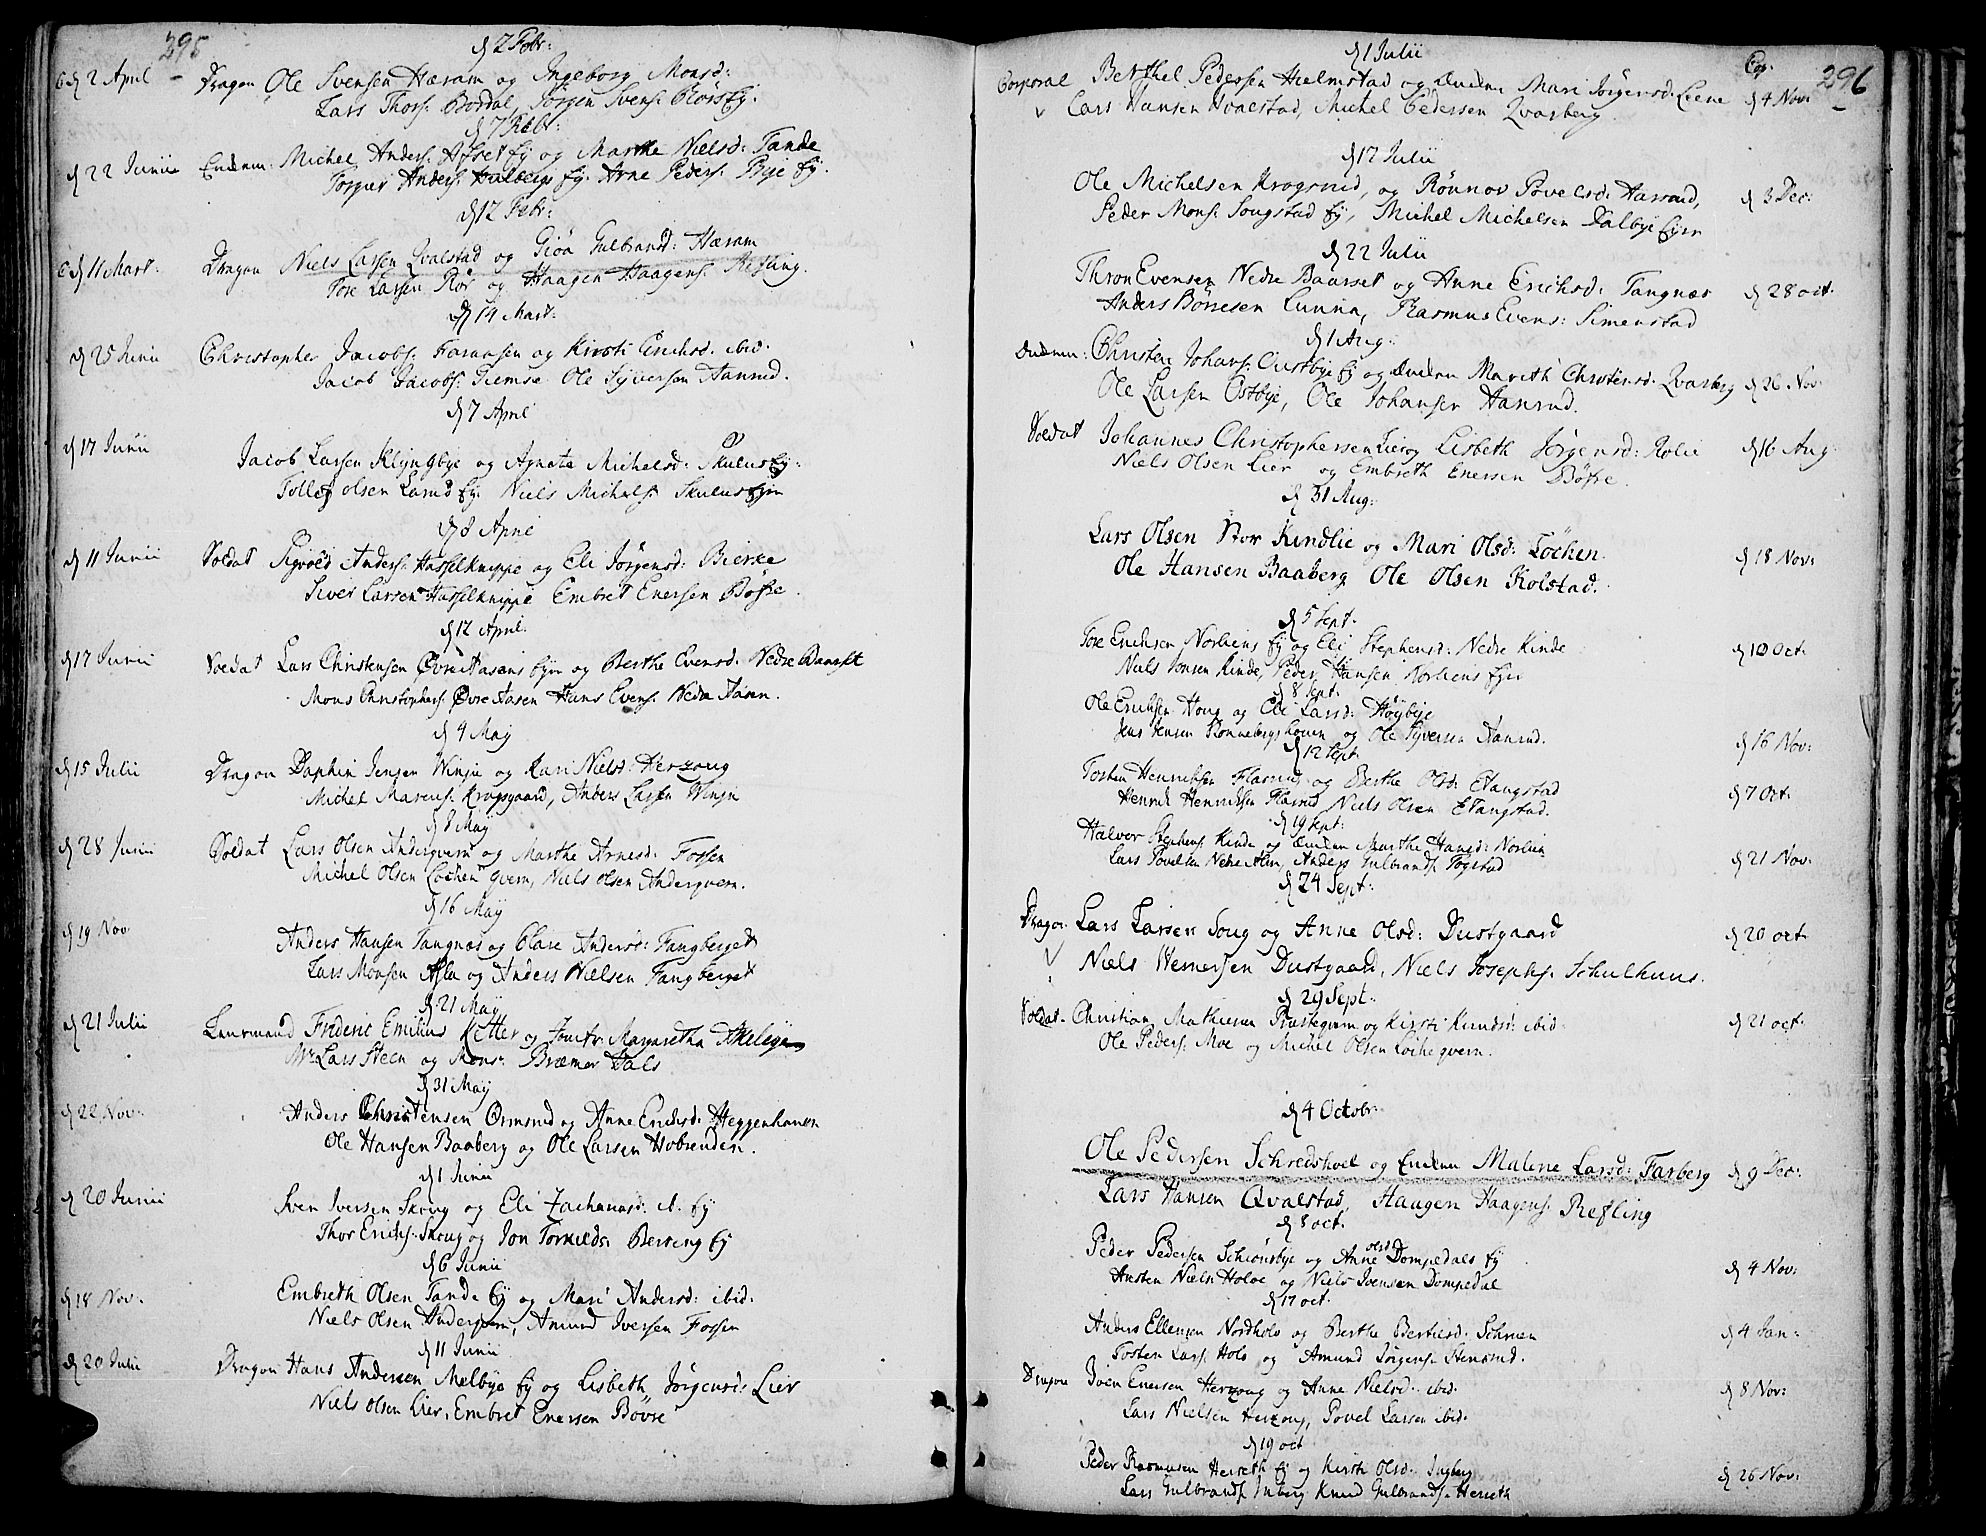 295
d 2 Febr:
d 2 April Dragon Ole Svensen Hæram og Ingeborg Monsd:
Lars Thors: Bordal, Jörgen Svens:
d 7 Febr:
d 22 Junii Enckem: Michel Anders: Afset Ey og Marthe Nielsd: Tande
Anders: Ey. Arne Peders: Bye Ey.
d 12 Febr:
d 11 Mart: Dragon Niels Larsen Qvalstad og Giøa Gulbrandsd: Hæram
Tore Larsen Rör og Haagen Haagens: Refling.
d 14 Mart:
d 25 Junii Christopher Jacobs: Faraasen og Kirsti Erichsd: ibid:
Jacob Jacobs: Tiemse Ole Syversen Aanrud.
d 7 April
d 17 Junii Jacob Larsen Klyngbye og Agnete Michelsd: Skulus Ey:
Tollef olsen Larud Ey. Niels Michels: Skulus Eyn
d 8 April
d 11 Junii Soldat Sigvold Anders: Hasselknippe og Eli Jörgensd: Bierke
Siver Larsen Hasselknippe Embret Enersen Böfre.
d 12 April.
d 17 Junii Soldat Lars Christensen Øvre Aasens Eyn og Berthe Evensd: Nedre Baarset
Mons Christophers: Øvre Aasen Hans Evens: Nedre Aasen.
d 4 May
d 15 Julii Dragon Daphin Jensen Winju og Kari Nielsd: Herzoug
Michel Marcus: Krogsgaard, Anders Larsen Winju
d 8 May
d 28 Junii Soldat Lars Olsen Anderqvern og Marthe Arnesd: Fossen
Michel Olsen Löchen qvern, Niels Olsen Anderqvern.
d 16 May
d 19 Nov Anders Hansen Tangnæs og Clare Andersd: Fangberget
Lars Monsen Asla og Anders Nielsen Fangberget
d 21 May
d 21 Julii Lensmand Frideric Emilius Ketter og Jomfr: Margaretha Akeleye
Mr Lars Steen og Monsr: Bræmer Dals
d 31 May
d 22 Nov: Anders Christensen Ormsrud og Anne Erichsd: Heggenhauen
Ole Hansen Baaberg og Ole Larsen Hobrenden.
d 1 Junii
d 20 Junii Sven Iversen Skoug og Eli Zachariasd: Ey
Thor Erichs: Skoug og Jon Torkilds: Berreng Ey
d 6 Junii
d 18 Nov: Embreth Olsen Tande Ey og Mari Andersd: ibid:
Niels Olsen Anderqvern, Amund Iversen Fossen
d 11 Junii
d 20 Julii Dragon Hans Andersen Melbye Ey og Lisbeth Jörgensd: Lier
Niels Olsen Lier, Embret Enersen Bövre
296
d 1 Julii Cop:
Corporal Berthel Pedersen Hielmstad og Enckem Mari Jörgensd: Liene d 4 Nov:
Lars Hansen Qvalstad, Michel Pedersen Qvarberg.
d 17 Julii
Ole Michelsen Krogsrud, og Rönnov Povelsd: Aasrud, d 3 Dec:
Peder Mons: Sougstad Ey, Michel Michelsen Dalbye Eyn
d 22 Julii
Thron Evensen Nedre Baarset og Anne Erichsd: Tangnæs d 28 oct:
Anders Börresen Lunna, Rasmus Evens: Simenstad
d 1 Aug:
Enckem: Christen Johans: Oustbye Ey og Enckem Marith Christensd: Qvarberg d 26 Nov:
Ole Larsen Östbye, Ole Johansen Hanrud.
Soldat Johannes Christophersen Lier og Lisbeth Jörgensd: Holie d 16 Aug:
Niels Olsen Lier og Embreth Enersen Böfre.
d 31 Aug:
Lars Olsen Stor Kindlie og Mari Olsd: Löchen. d 18 Nov:
Ole Hansen Baaberg Ole Olsen Kolstad.
d 5 Sept:
Tore Erichsen Norliens Ey og Eli Stephensd: Nedre Kinde d 10 Oct:
Niels Jonsen Kinde, Peder Hansen Norliens Eyn
d 8 Sept:
Ole Erichsen Houg og Eli Larsd: Höybye d 16 Nov:
Jens Jensen Ronnebergshouen og Ole Syversen Aanrud.
d 12 Sept:
Tosten Henrichsen Flasrud og Berthe Olsd: Etangstad d 7 Oct:
Henrik Henrichsen Flasrud Niels Olsen Etangstad.
d 19 Sept:
Halvor Stephens: Kinde og Enckem Marthe Hansd: Norlien d 21 Nov:
Lars Povelsen Nedre Alm, Anders Gulbrands: Togstad
d 24 Sept:
Dragon Lars Larsen Soug og Anne Olsd: Dustgaard d 20 oct:
Niels Wernersen Dustgaard, Niels Josephs: Schulhuus.
d 29 Sept:
Soldat Christian Mathiesen Præsteqvern og Kirsti Knudsd: ibid: d 21 oct:
Ole Peders: Moe og Michel Olsen Löcheqvern.
d 4 Octobr:
Ole Pedersen Schredshoel og Enckem Malene Larsd: Farberg d 9 Dec:
Lars Hansen Qvalstad, Haagen Haagens: Refling
d 8 oct:
Peder Pedersen Schiönsbye og Anne olsd Dompedals Ey d 4 Nov:
Austen Niels: Holoe og Niels Svensen Dompedal
d 17 oct:
Anders Ellensen Nordholo og Berthe Bertelsd: Schrien d 4 Jan:
Tosten Lars: Holo og Amund Jörgens: Stensrud.
Dragon Joen Enersen Herzoug og Anne Nielsd: ibid: d 8 Nov:
Lars Nielsen Herzoug, Povel Larsen ibid:
d 19 oct
Peder Rasmusen Herseth Ey og Kirsti Olsd: Inberg d 26 Nov:
Lars Gulbrands: Inberg Knud Gulbrands: Herseth